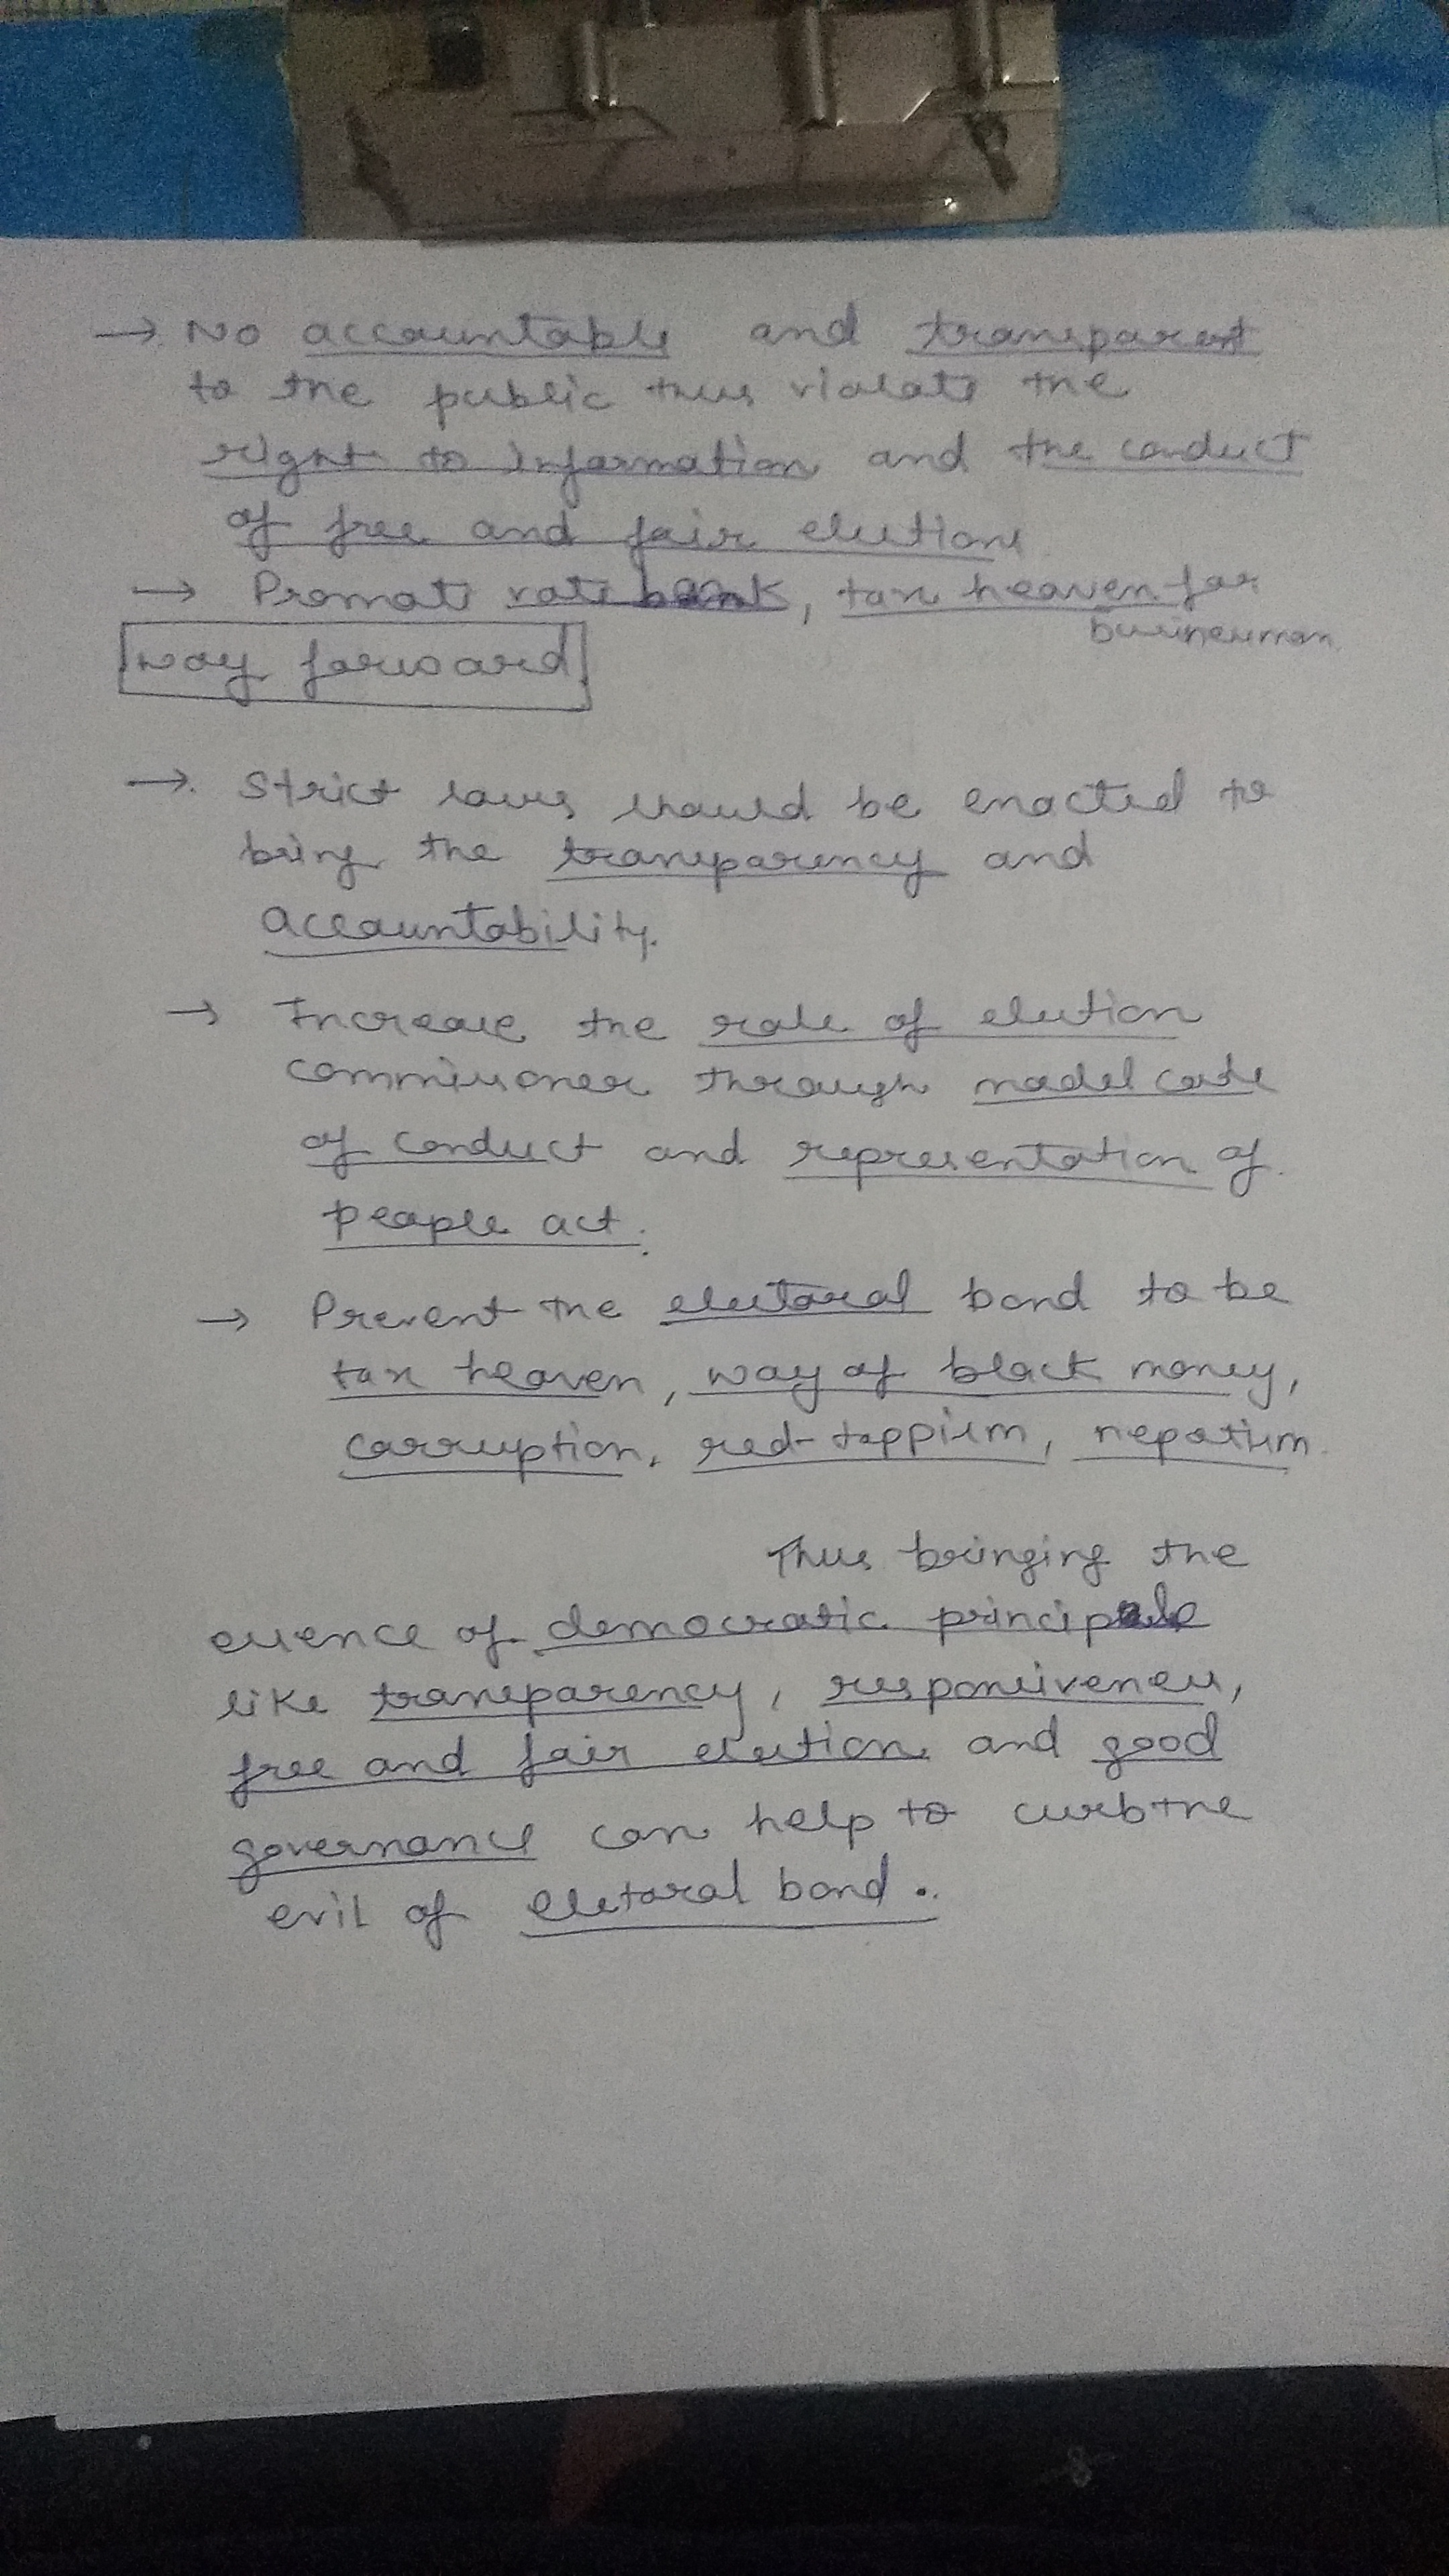 → No accountable and transparent
to the public thus violate the
right to information and the conduct
of free and fair elections
→ Promote vote bank, tax heaven for
businessman
way forward
→ Strict laws should be enacted to
bring the transparency and
accountability.
→ Increase the role of election
commissioner through model code
of conduct and representation of
people act.
→ Prevent the electoral bond to be
tax heaven, way of black money,
corruption, red-tappism, nepotism.
Thus bringing the
essence of democratic principle
like transparency, responsiveness,
free and fair election and good
governance can help to curb the
evil of eletoral bond.